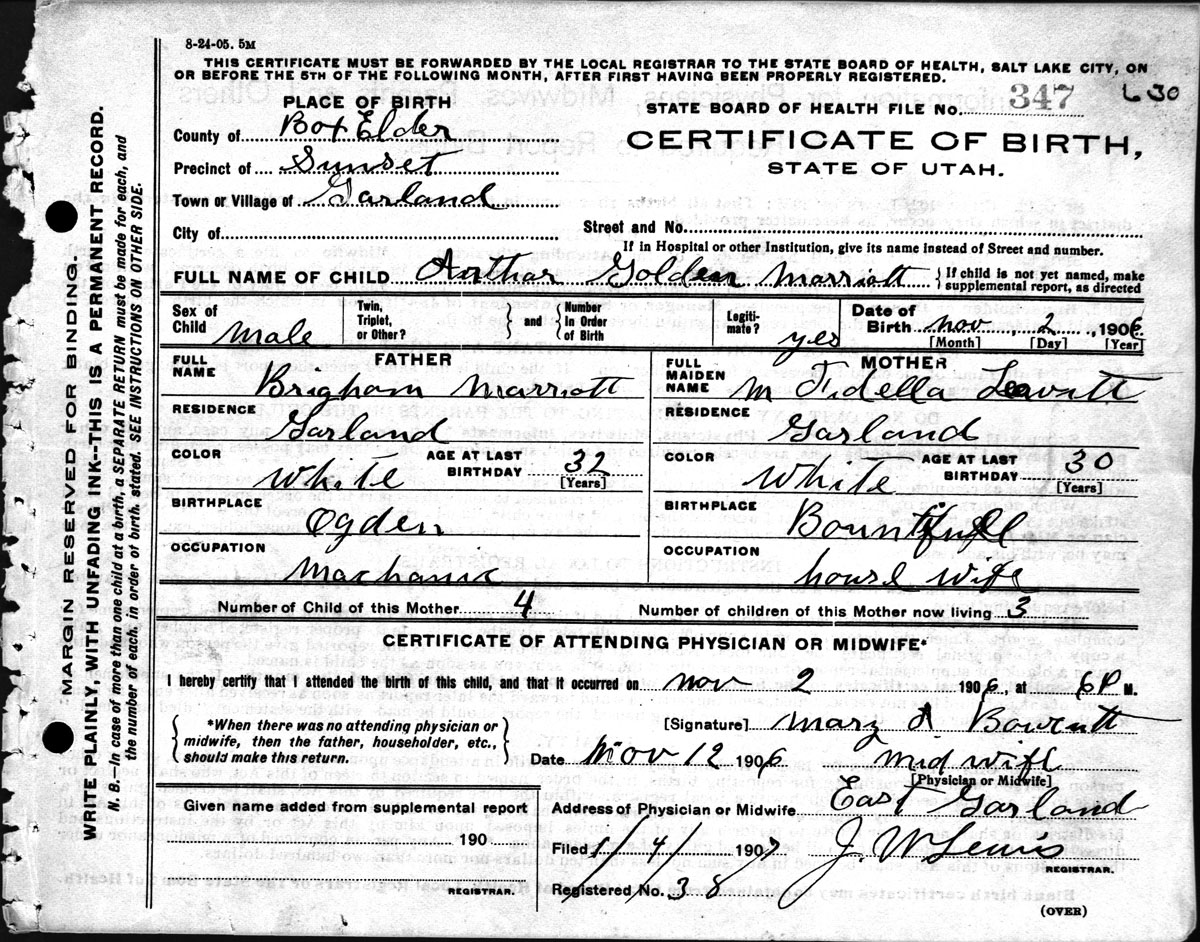 8-24-05. 5M
THIS CERTIFICATE MUST BE FORWARDED BY THE LOCAL REGISTRAR TO THE STATE BOARD OF HEALTH, SALT LAKE CITY, ON
OR BEFORE THE 5TH OF THE FOLLOWING MONTH, AFTER FIRST HAVING BEEN PROPERLY REGISTERED.
PLACE OF BIRTH
STATE BOARD OF HEALTH FILE No. 347 L 30
County of Box Elder
CERTIFICATE OF BIRTH,
Precinct of Sunset
STATE OF UTAH.
Town or Village of Garland
City of
Street and No.
If in Hospital or other Institution, give its name instead of Street and number.
FULL NAME OF CHILD Arthar Golden Marriott { If child is not yet named, make
supplemental report, as directed
Sex of Child Male
Twin, Triplet, or Other? } and { Number In Order of Birth
Legiti- mate? yes
Date of Birth Nov 2, 1906
[Month] [Day] [Year]
FATHER
FULL NAME Brigham Marriott
RESIDENCE Garland
COLOR White AGE AT LAST BIRTHDAY 32 [Years]
BIRTHPLACE Ogden
OCCUPATION Machanic
MOTHER
FULL MAIDEN NAME M Fidella Leavitt
RESIDENCE Garland
COLOR White AGE AT LAST BIRTHDAY 30 [Years]
BIRTHPLACE Bountifull
OCCUPATION house wife
Number of Child of this Mother 4 Number of children of this Mother now living 3
CERTIFICATE OF ATTENDING PHYSICIAN OR MIDWIFE*
I hereby certify that I attended the birth of this child, and that it occurred on Nov 2 1906, at 6 P M.
{ *When there was no attending physician or
midwife, then the father, householder, etc.,
should make this return. }
[Signature] Mary A
Date Nov 12 1906 Mid wife
[Physician or Midwife]
Given name added from supplemental report
190
REGISTRAR.
Address of Physician or Midwife East Garland
Filed 1/4/1907 J. W Lewis
REGISTRAR.
Registered No. 38
(OVER)
MARGIN RESERVED FOR BINDING.
WRITE PLAINLY, WITH UNFADING INK--THIS IS A PERMANENT RECORD.
N. B.—In case of more than one child at a birth, a SEPARATE RETURN must be made for each, and
the number of each, in order of birth, stated. SEE INSTRUCTIONS ON OTHER SIDE.